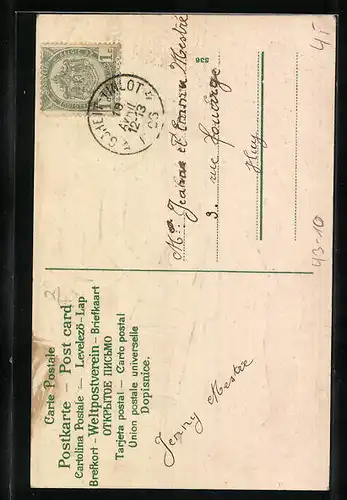 Carte Postale
Postkarte — Post card
Cartolina Postale — Levelező-Lap
Brefkort — Weltpostverein — Briefkaart
ОТКРЫТОЕ ПИСЬМО
Tarjeta postal — Carto postal
Union postale universelle
Dopisnice.
Jenny Mestré
Jeanne et Emma Mestré
3, rue
Huy
636
43-10